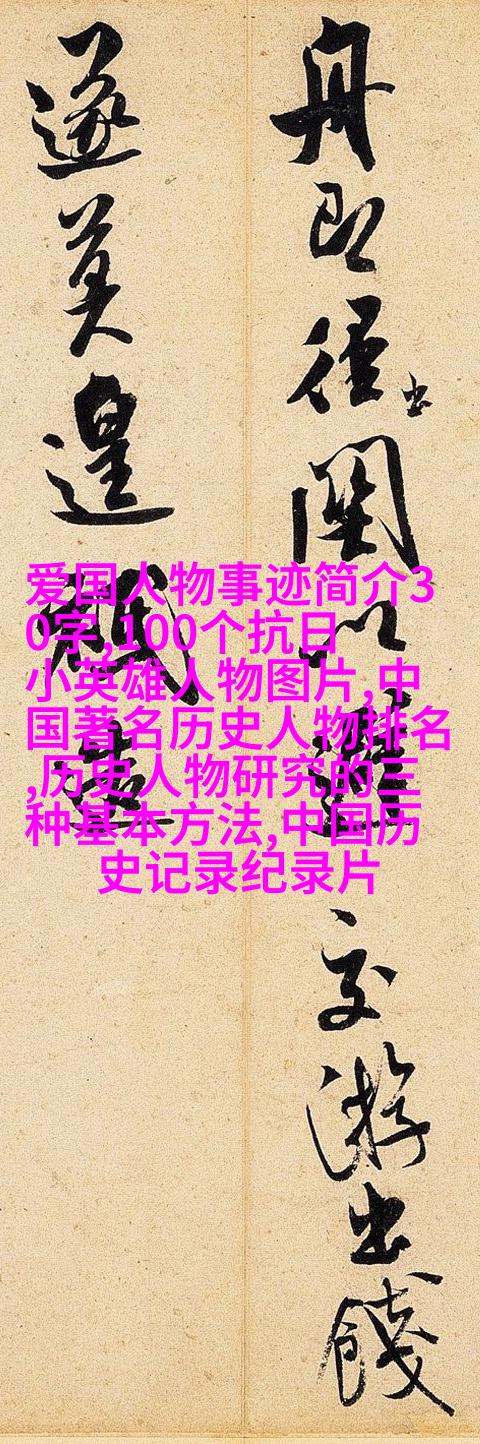 舟即徑出關以避交游出餞
遂莫遑祗
爱国人物事迹简介3
0字,100个抗日
小英雄人物图片,中
国著名历史人物排名
,历史人物研究的三
种基本方法,中国历
史记录纪录片